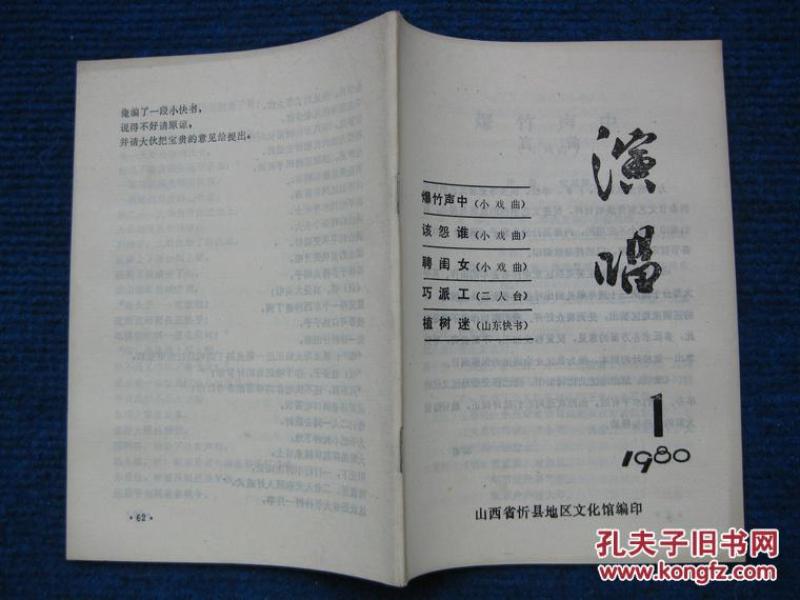 俺编了一段小快书，
说得不好请原谅，
并请大伙把宝贵的意见给提出。
·62·
演唱
爆竹声中（小戏曲）
该怨谁（小戏曲）
聘闺女（小戏曲）
巧派工（二人台）
植树迷（山东快书）
1
1980
山西省忻县地区文化馆编印
孔夫子旧书网
www.kongfz.com